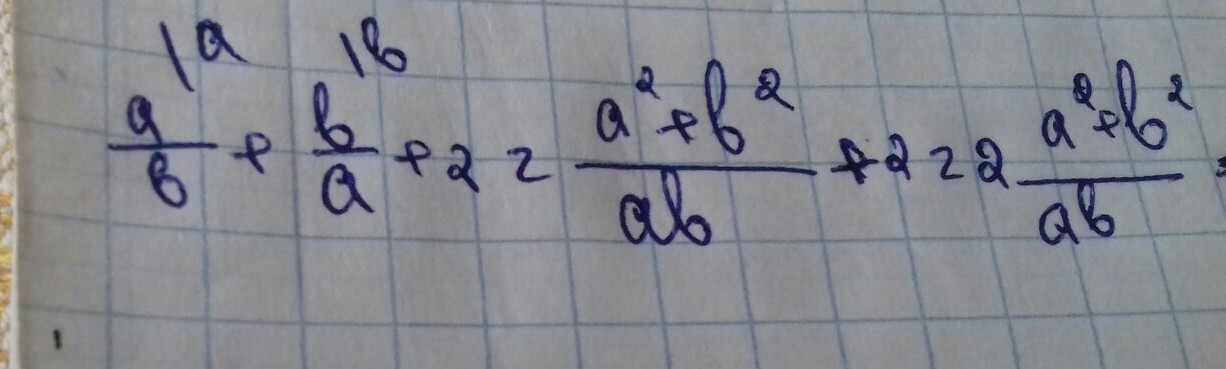 \a \b
a/b + b/a + 2 = a²+b²/ab + 2 = 2 a²+b²/ab =